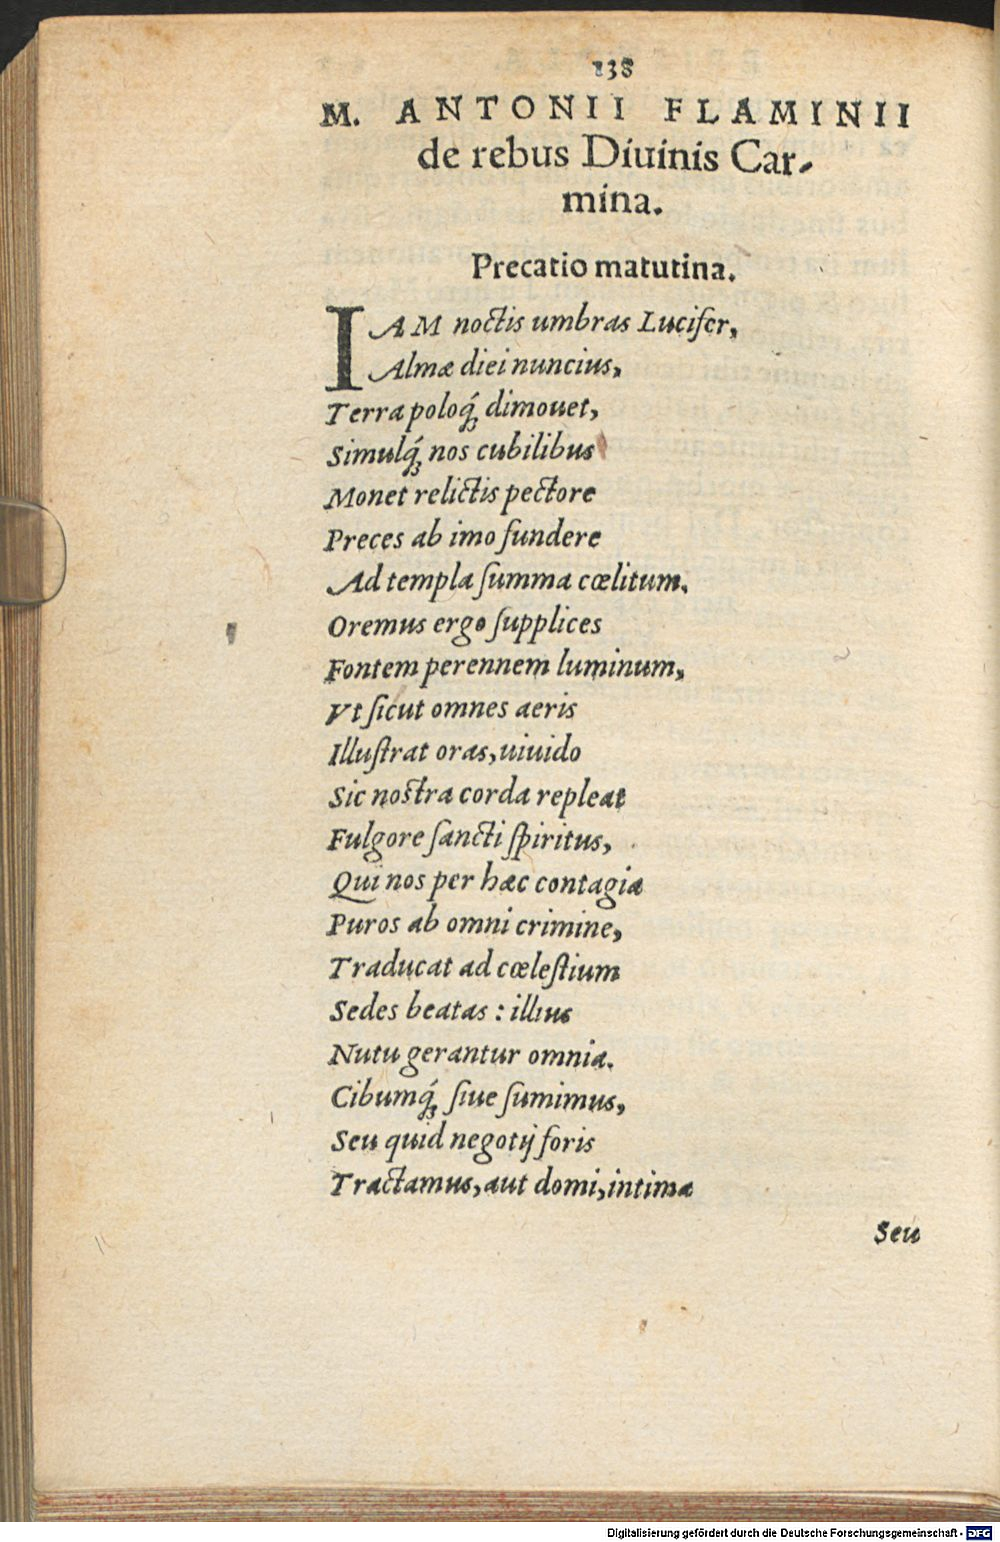 138
M. ANTONII FLAMINII
de rebus Diuinis Car-
mina.
Precatio matutina.
IAM noctis umbras Lucifer,
Almæ diei nuncius,
Terra poloq́ꝫ dimouet,
Simulq́ꝫ nos cubilibus
Monet relictis pectore
Preces ab imo fundere
Ad templa ſumma cœlitum.
Oremus ergo ſupplices
Fontem perennem luminum,
Vt ſicut omnes aeris
Illuſtrat oras, uiuido
Sic noſtra corda repleat
Fulgore ſancti ſpiritus,
Qui nos per hæc contagia
Puros ab omni crimine,
Traducat ad cœleſtium
Sedes beatas: illius
Nutu gerantur omnia.
Cibumq́ꝫ ſiue ſumimus,
Seu quid negotij foris
Tractamus, aut domi, intima
Seu
Digitalisierung gefördert durch die Deutsche Forschungsgemeinschaft - DFG